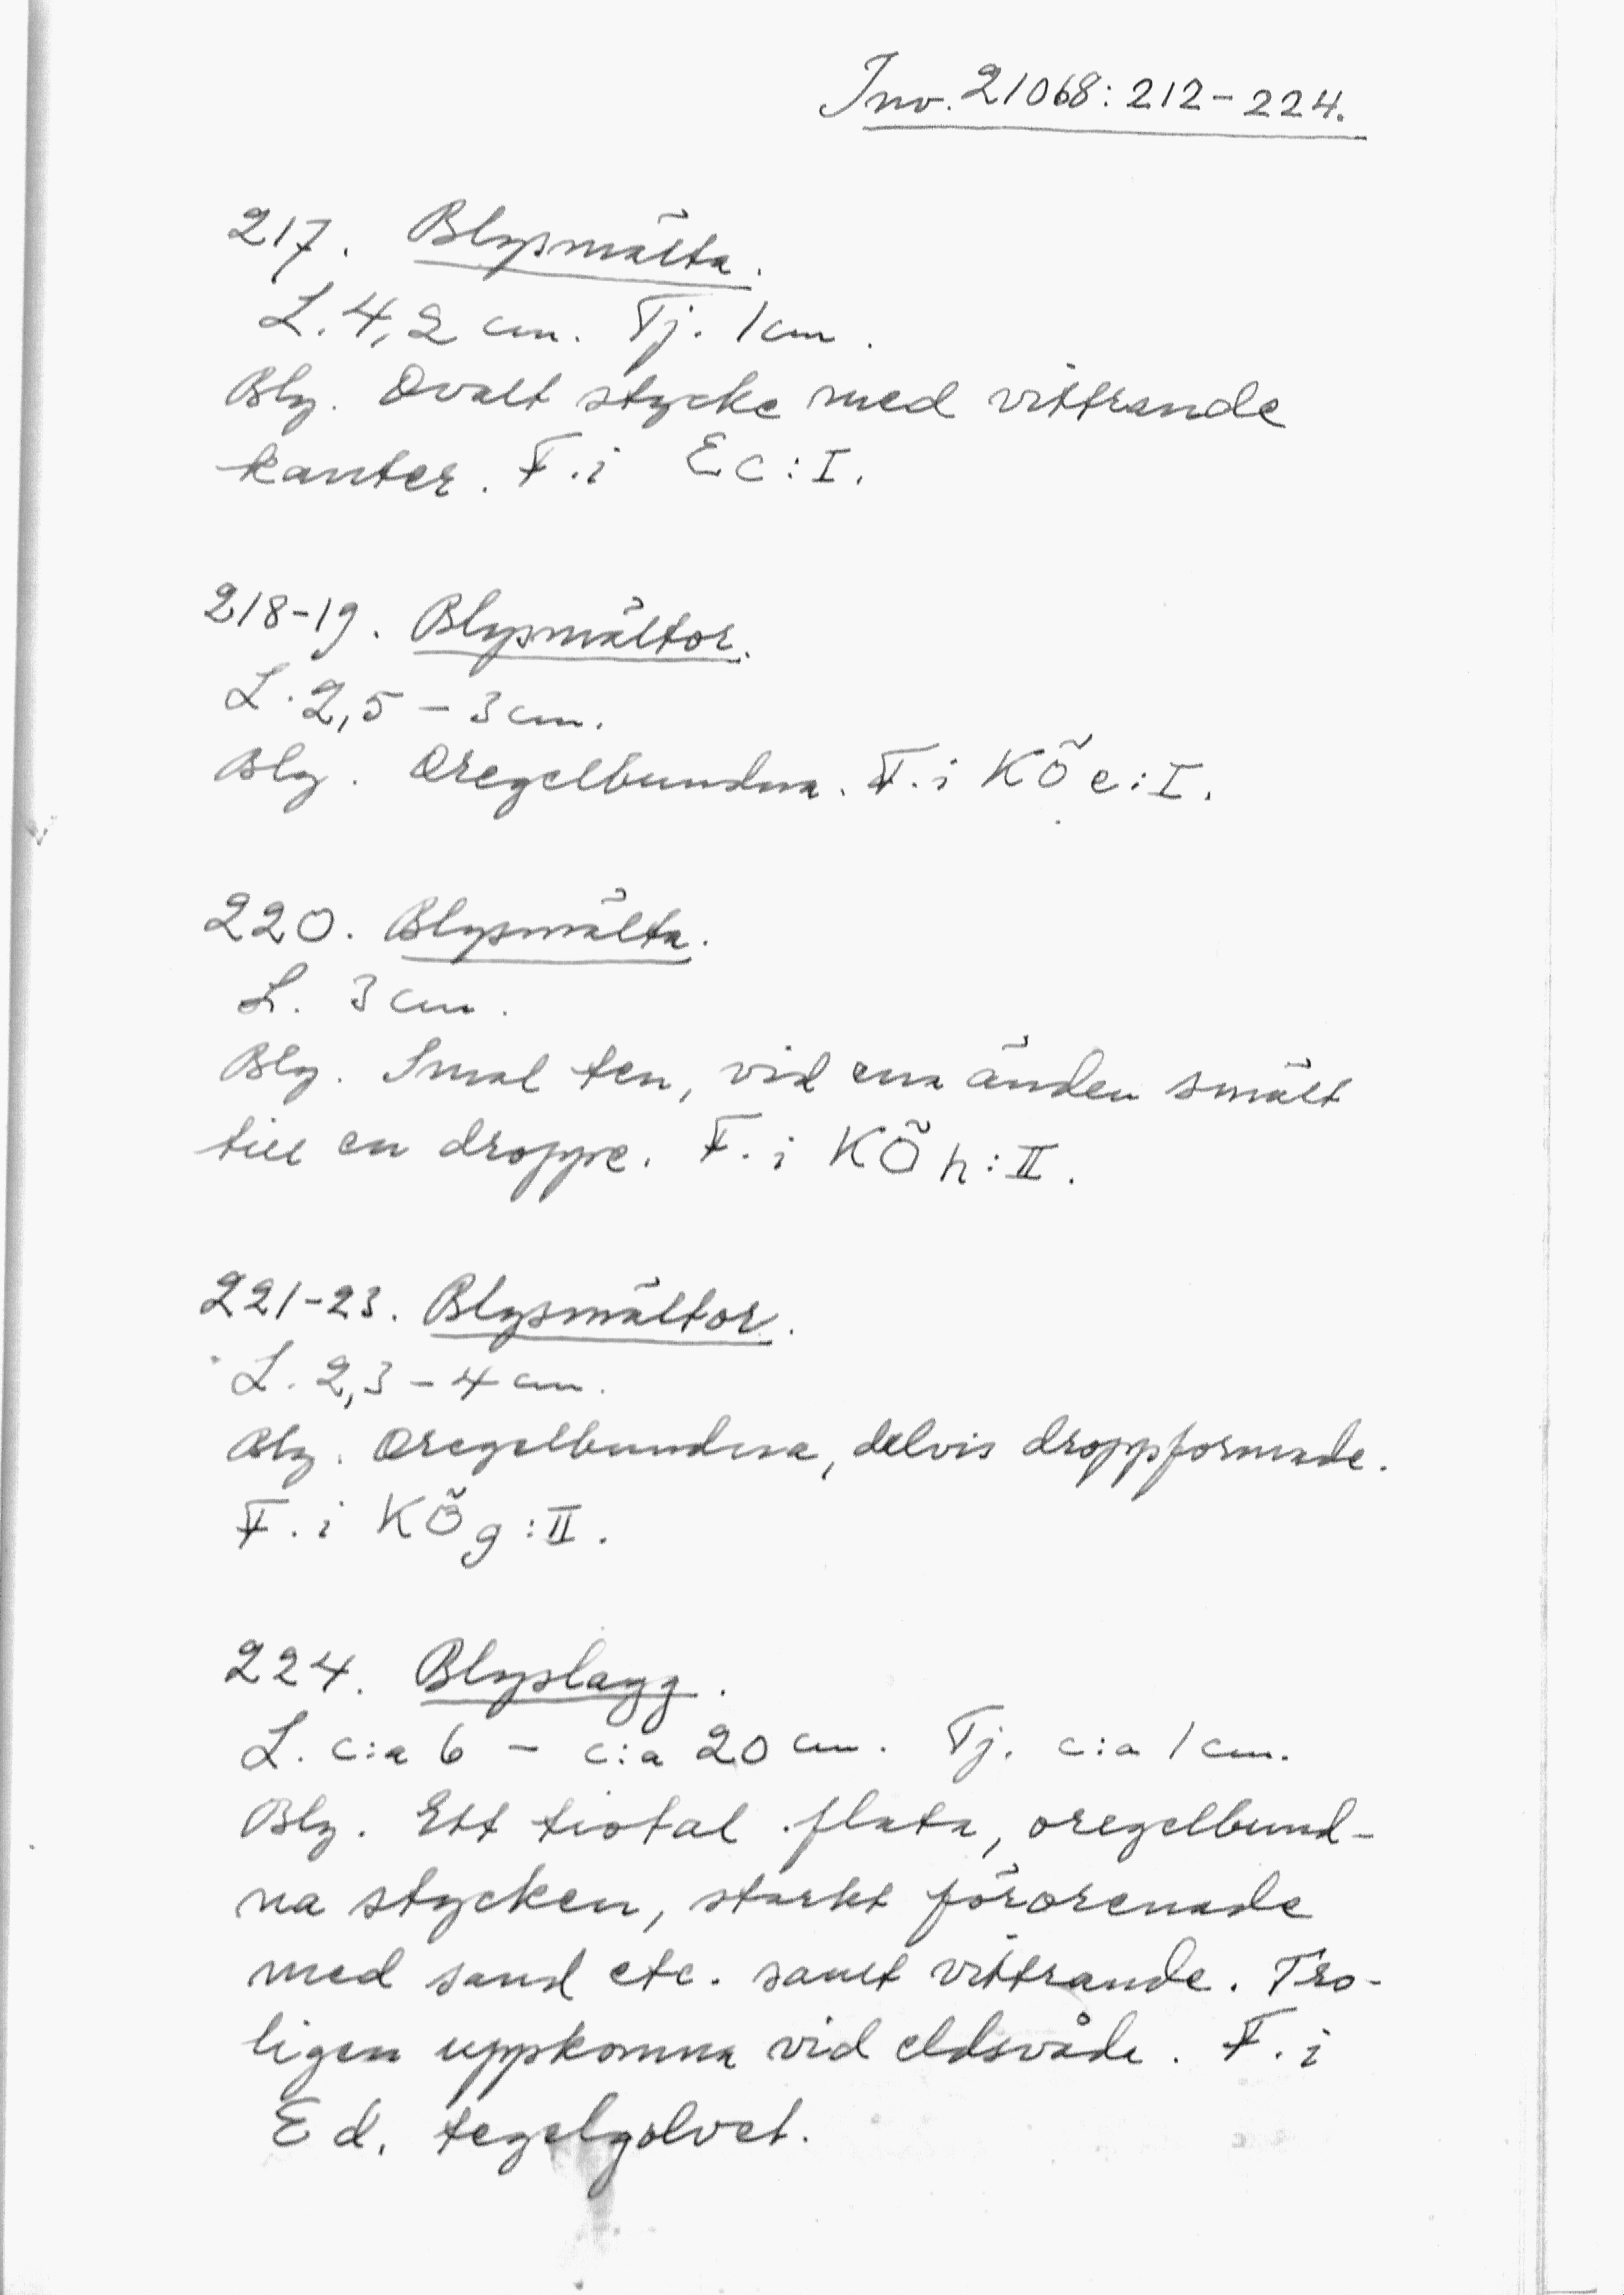 Inv. 21068:212-224.
217. Blysmälta.
L. 4,2 cm. Tj. 1 cm.
Bly. Ovalt stycke med vittrande
kanter. F. i Ec:I.
218-19. Blysmältor.
L. 2,5 - 3 cm.
Bly. Oregelbundna. F. i KÖe:I.
220. Blysmälta.
L. 3 cm.
Bly. Smal ten, vid ena änden smält
till en droppe. F. i KÖh:II.
221-23. Blysmältor.
L. 2,3 - 4 cm.
Bly. Oregelbundna, delvis droppformade.
F. i KÖg:II.
224. Blyslagg.
L. c:a 6 - c:a 20 cm. Tj. c:a 1 cm.
Bly. Ett tiotal flata, oregelbund-
na stycken, starkt förorenade
med sand etc. samt vittrande. Tro-
ligen uppkomna vid eldsvåda. F. i
Ed. tegelgolvet.